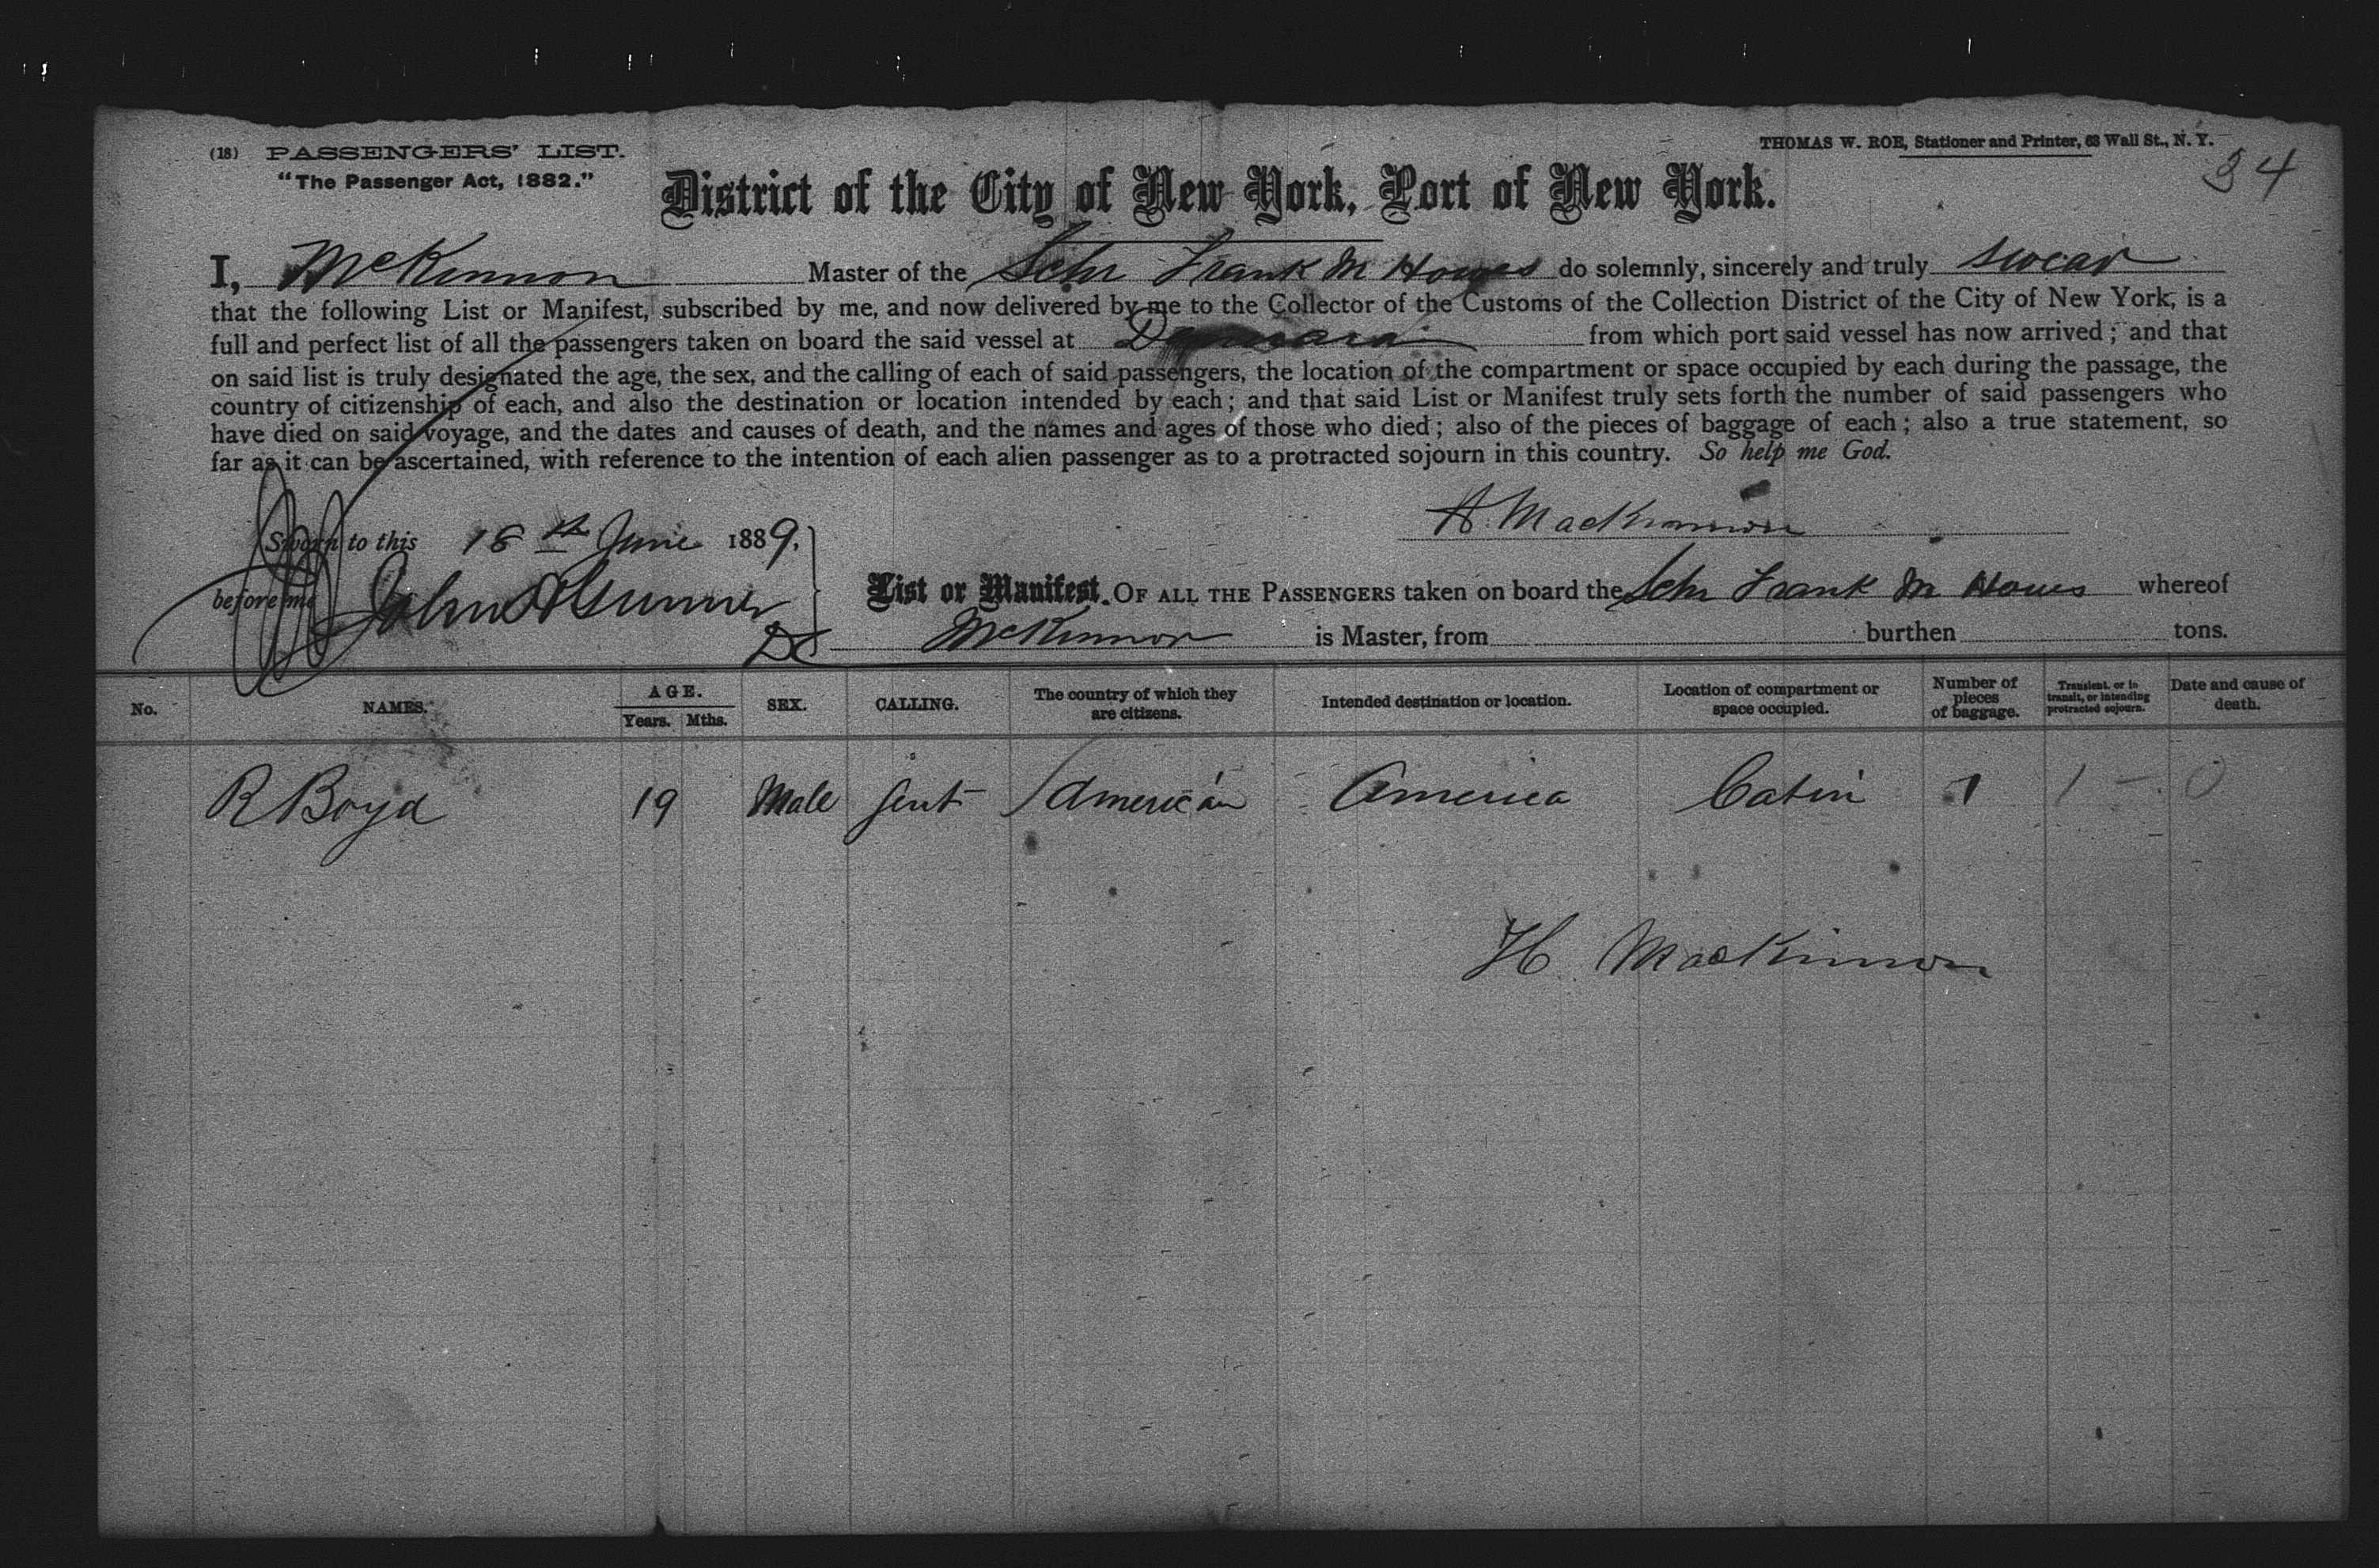 (18) PASSENGERS' LIST.
THOMAS W. ROE, Stationer and Printer, 63 Wall St., N. Y.
"The Passenger Act, 1882."
34
District of the City of New York, Port of New York.
I, McKinnon Master of the Schr Frank M Howes do solemnly, sincerely and truly swear
that the following List or Manifest, subscribed by me, and now delivered by me to the Collector of the Customs of the Collection District of the City of New York, is a
full and perfect list of all the passengers taken on board the said vessel at Demarara from which port said vessel has now arrived; and that
on said list is truly designated the age, the sex, and the calling of each of said passengers, the location of the compartment or space occupied by each during the passage, the
country of citizenship of each, and also the destination or location intended by each; and that said List or Manifest truly sets forth the number of said passengers who
have died on said voyage, and the dates and causes of death, and the names and ages of those who died; also of the pieces of baggage of each; also a true statement, so
far as it can be ascertained, with reference to the intention of each alien passenger as to a protracted sojourn in this country. So help me God.
H. MacKinnon
Sworn to this 18th June 1889.
before me John A
List or Manifest. OF ALL THE PASSENGERS taken on board the Schr Frank M Howes whereof
McKinnon is Master, from burthen tons.
No. NAMES. AGE. Years. Mths. SEX. CALLING. The country of which they are citizens. Intended destination or location. Location of compartment or space occupied. Number of pieces of baggage. Transient, or in transit, or intending protracted sojourn. Date and cause of death.
R Boyd 19 Male Gent American America Cabin 1 1 - 0
H MacKinnon